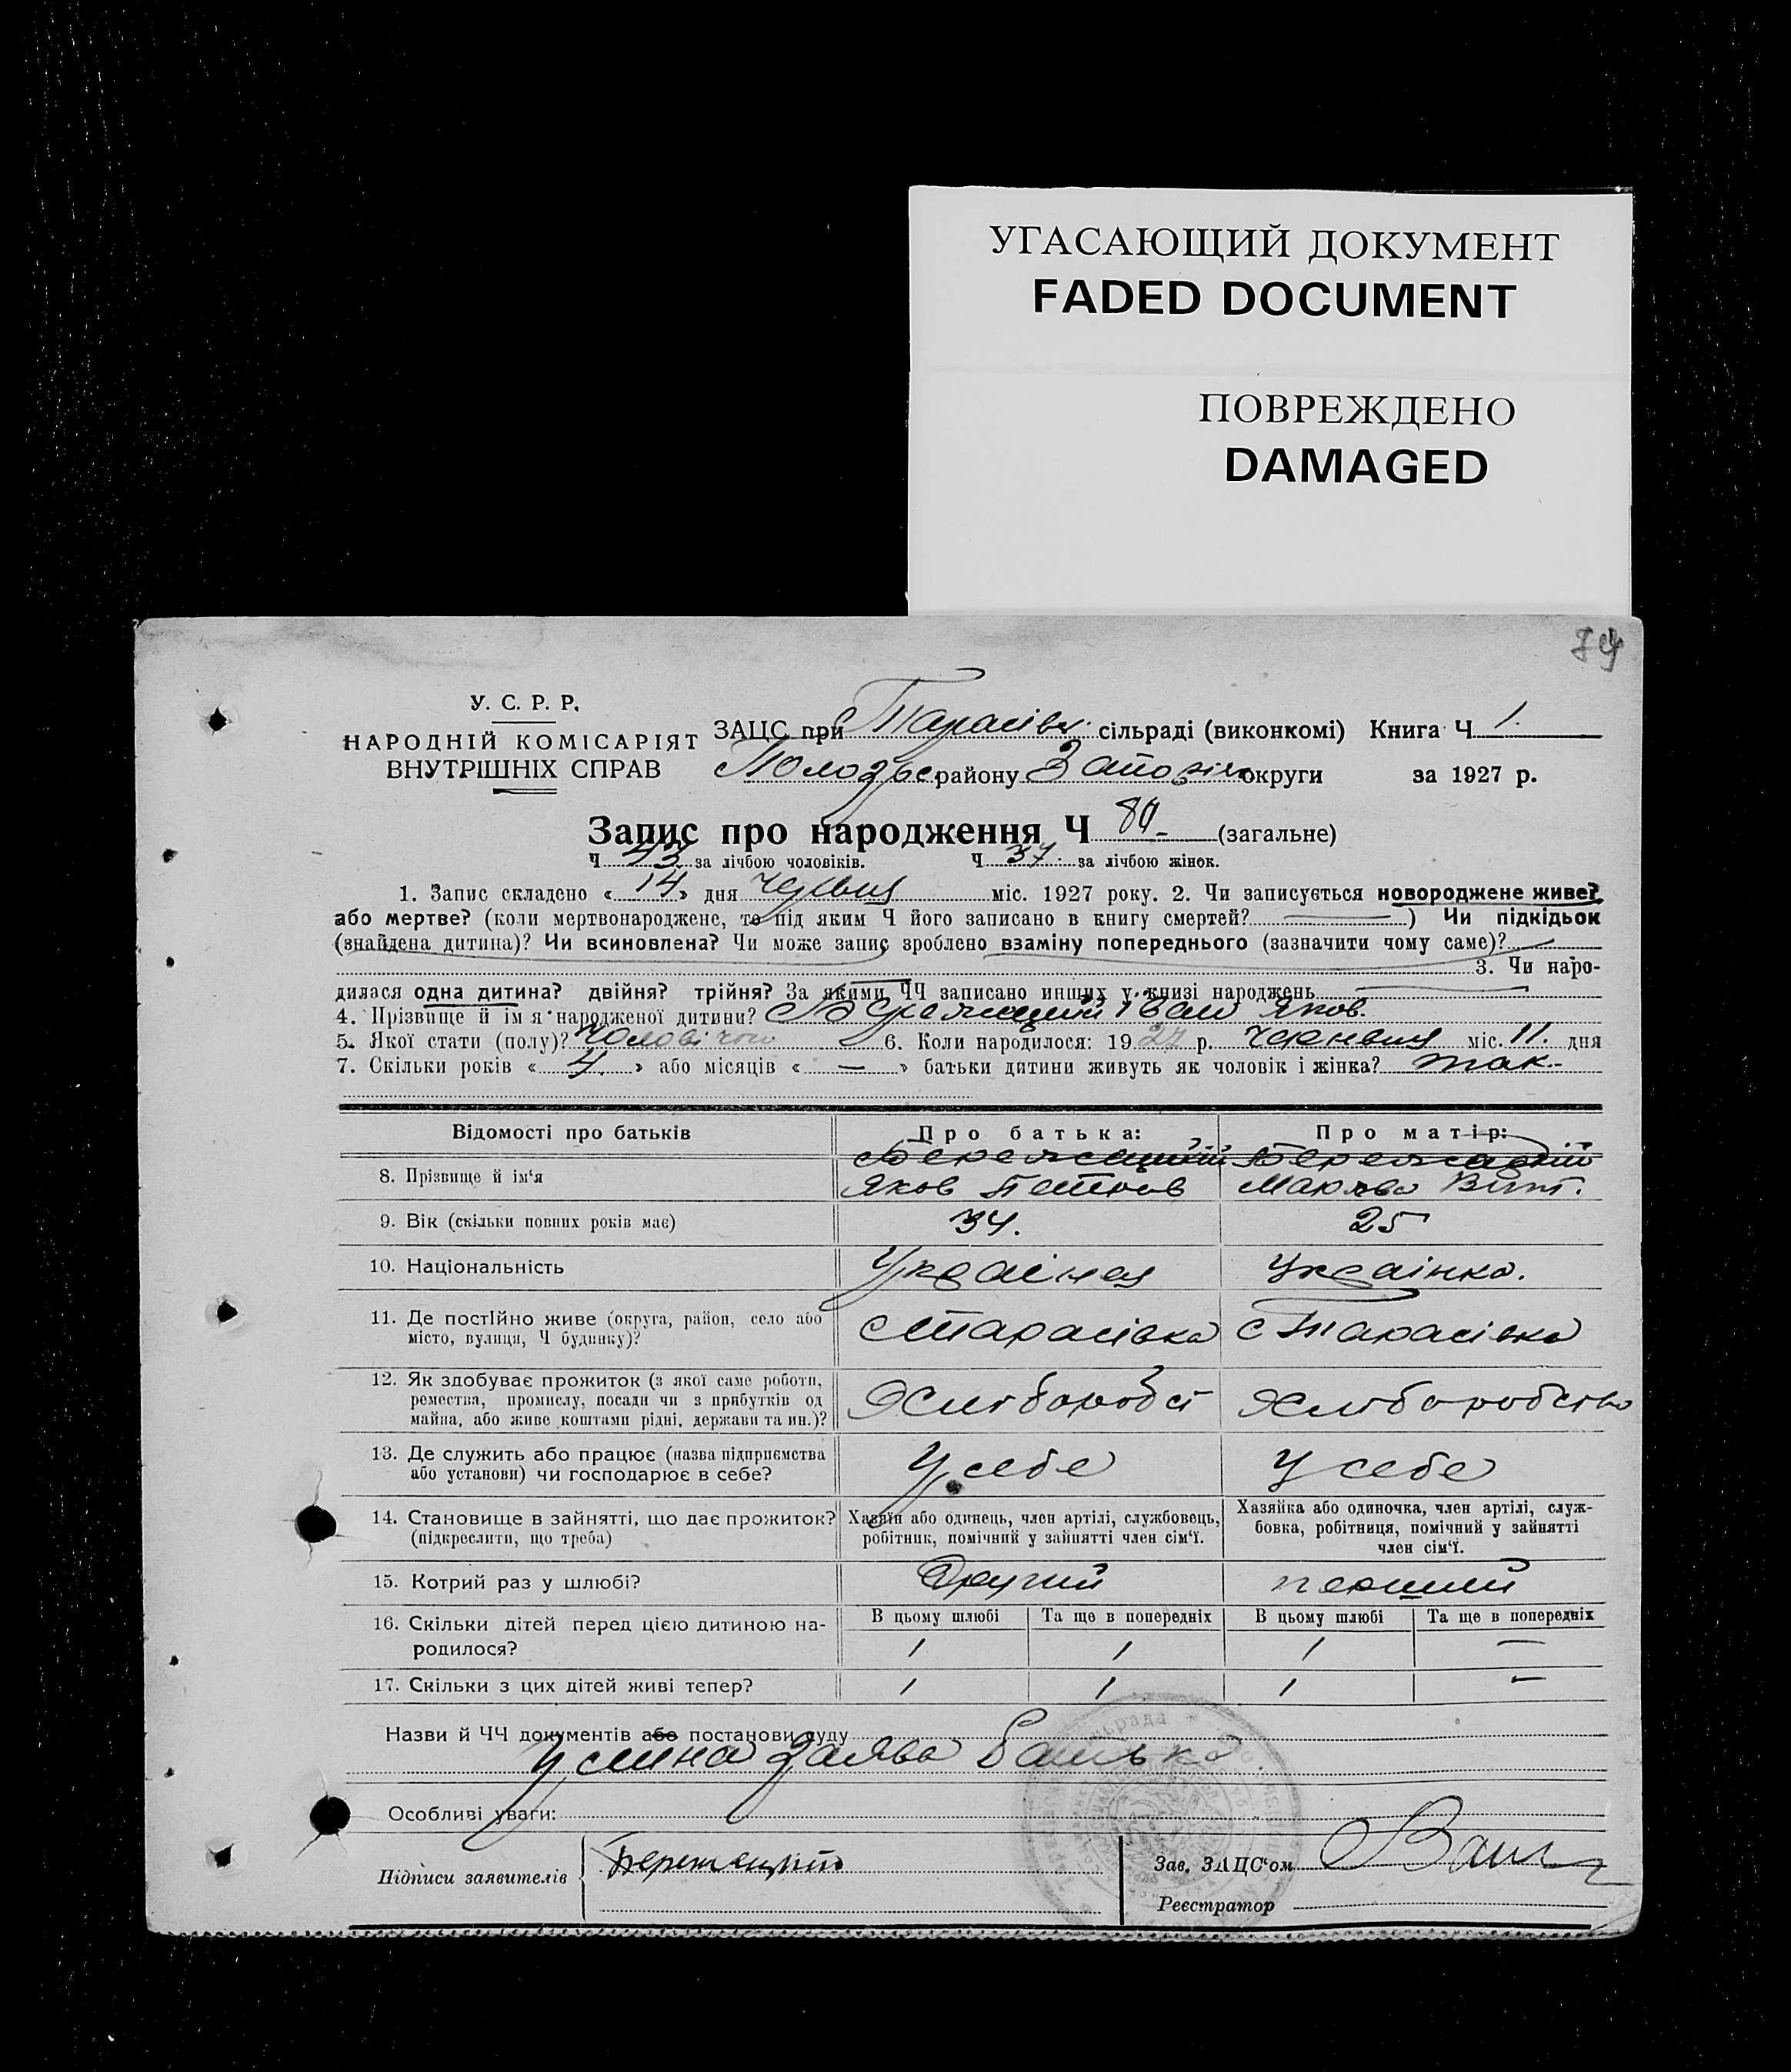 УГАСАЮЩИЙ ДОКУМЕНТ
FADED DOCUMENT
ПОВРЕЖДЕНО
DAMAGED
У. С. Р. Р.
НАРОДНІЙ КОМІСАРІЯТ
ВНУТРІШНІХ СПРАВ
ЗАЦС при Тарасівк. сільраді (виконкомі) Книга Ч 1.
району округи за 1927 р.
Запис про народження Ч (загальне)
Ч 43 за лічбою чоловіків. Ч 37. за лічбою жінок.
1. Запис складено « 14 » дня червня міс. 1927 року. 2. Чи записується новороджене живе?
або мертве? (коли мертвонароджене, то під яким Ч його записано в книгу смертей? ) Чи підкідьок
(знайдена дитина)? Чи всиновлена? Чи може запис зроблено взаміну попереднього (зазначити чому саме)?
3. Чи наро-
дилася одна дитина? двійня? трійня? За якими ЧЧ записано инших у книзі народжень
4. Прізвище й ім'я народженої дитини? Іван Яков.
5. Якої стати (полу)? Чоловічої 6. Коли народилося: 1927 р. червня міс. 11. дня
7. Скільки років « 4. » або місяців « — » батьки дитини живуть як чоловік і жінка? так.
Відомості про батьків Про батька: Про матір:
8. Прізвище й ім'я
Яков Петров
9. Вік (скільки повних років має) 34. 25
10. Національність Українец Українка.
11. Де постійно живе (округа, район, село або с Тарасівка с Тарасівка
місто, вулиця, Ч будинку)?
12. Як здобуває прожиток (з якої саме роботи,
ремества, промислу, посади чи з прибутків од Хліборобст Хліборобство
майна, або живе коштами рідні, держави та ин.)?
13. Де служить або працює (назва підприємства У себе У себе
або установи) чи господарює в себе?
14. Становище в зайнятті, що дає прожиток? Хазяїн або одинець, член артілі, службовець, Хазяйка або одиночка, член артілі, служ-
(підкреслити, що треба) робітник, помічний у зайнятті член сім'ї. бовка, робітниця, помічний у зайнятті
член сім'ї.
15. Котрий раз у шлюбі? Другий перший
В цьому шлюбі Та ще в попередніх В цьому шлюбі Та ще в попередніх
16. Скільки дітей перед цією дитиною на-
родилося? 1 1 1 —
17. Скільки з цих дітей живі тепер? 1 1 1 —
Назви й ЧЧ документів або постанови суду
Усмна заява батька
Особливі уваги:
Підписи заявителів
Зав. ЗАЦС'ом
Реєстратор